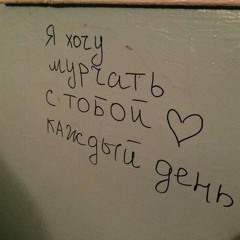 Я хочу
мурчать
с тобой ♡
каждый день